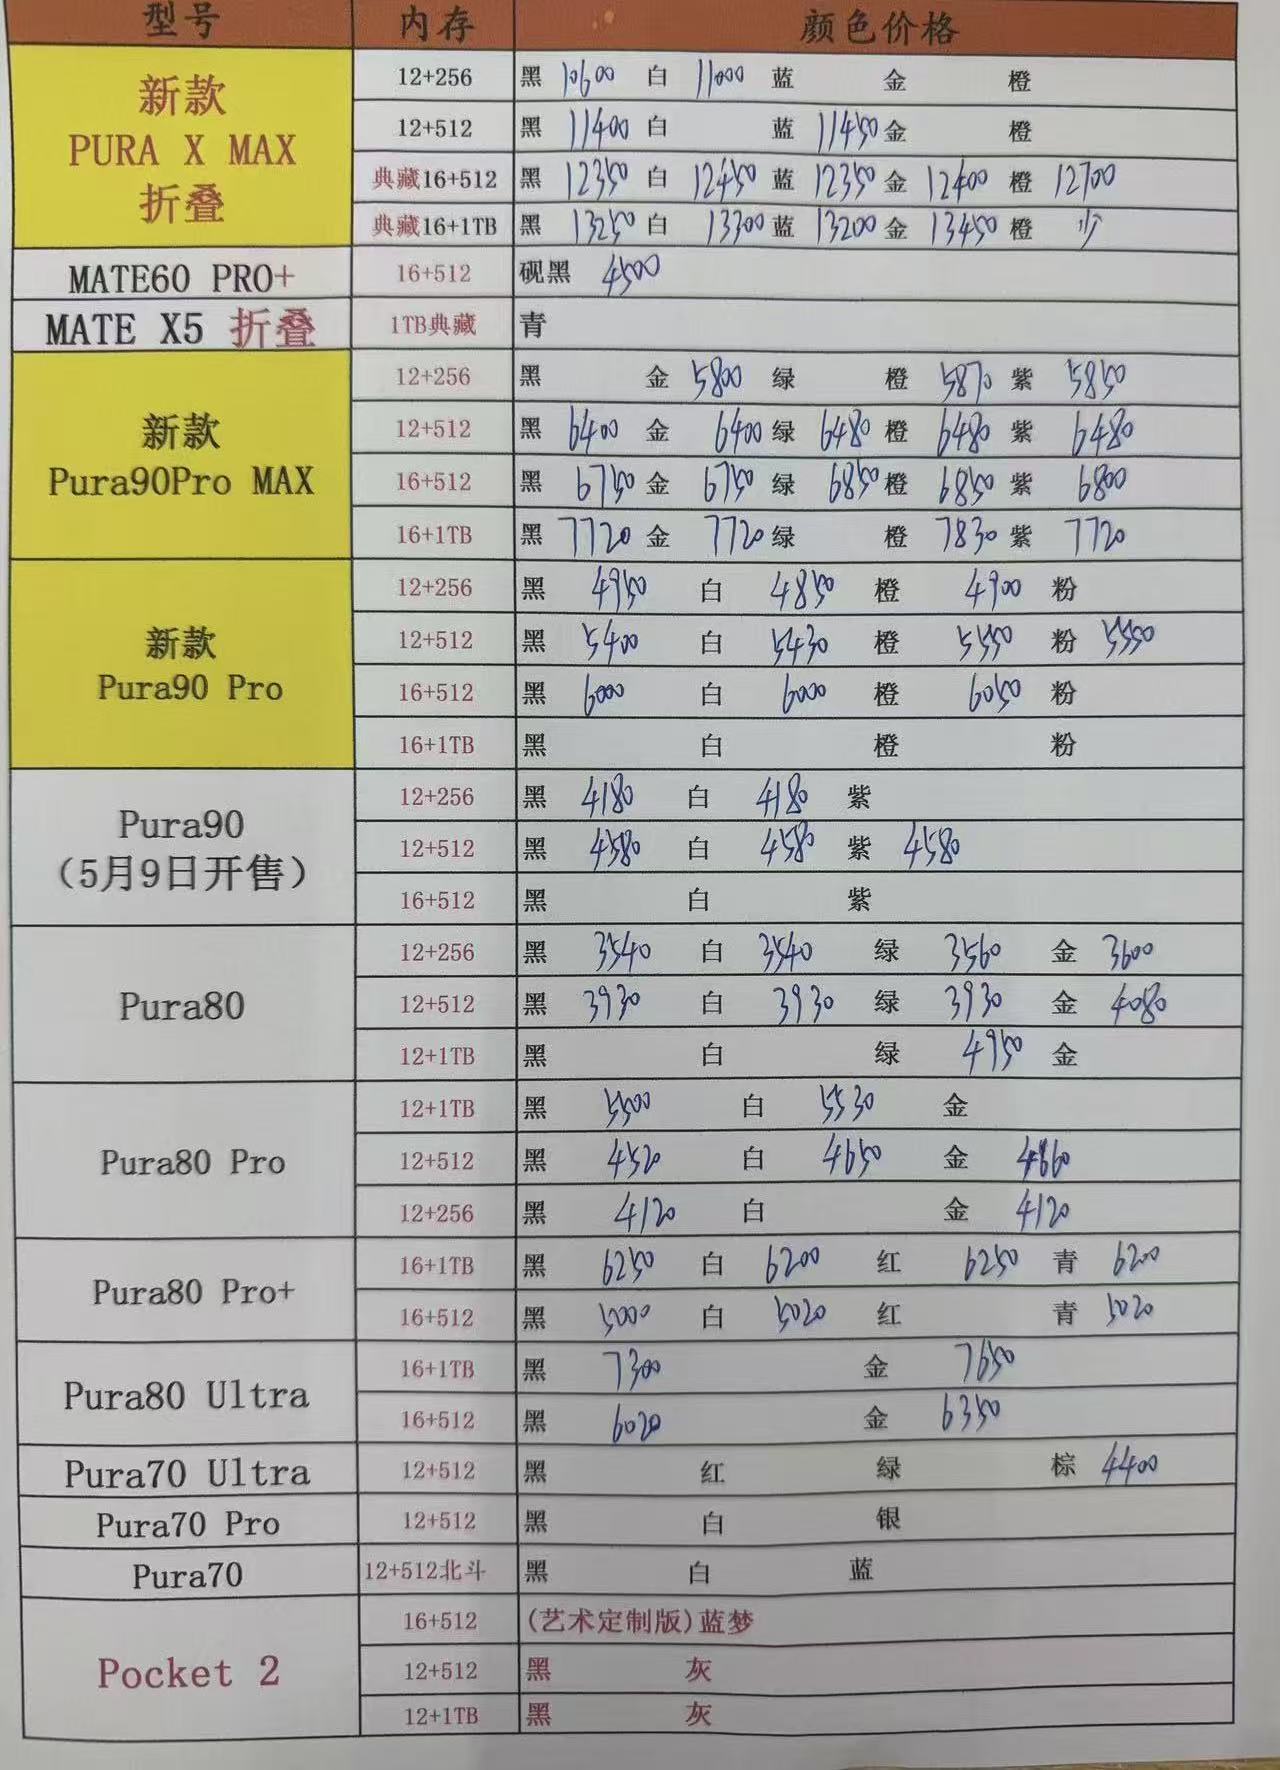 型号 内存 颜色价格
新款 PURA X MAX 折叠
12+256 黑 10600 白 11000 蓝 金 橙
12+512 黑 11400 白 蓝 11450 金 橙
典藏16+512 黑 12350 白 12450 蓝 12350 金 12400 橙 12700
典藏16+1TB 黑 13250 白 13300 蓝 13200 金 13450 橙 少
MATE60 PRO+ 16+512 砚黑 4500
MATE X5 折叠 1TB典藏 青
新款 Pura90Pro MAX
12+256 黑 金 5800 绿 橙 5870 紫 5850
12+512 黑 6400 金 6400 绿 6480 橙 6480 紫 6480
16+512 黑 6750 金 6750 绿 6850 橙 6850 紫 6800
16+1TB 黑 7720 金 7720 绿 橙 7830 紫 7720
新款 Pura90 Pro
12+256 黑 4950 白 4850 橙 4900 粉
12+512 黑 5400 白 5430 橙 5550 粉 5550
16+512 黑 6000 白 6000 橙 6050 粉
16+1TB 黑 白 橙 粉
Pura90 （5月9日开售）
12+256 黑 4180 白 4180 紫
12+512 黑 4580 白 4580 紫 4580
16+512 黑 白 紫
Pura80
12+256 黑 3540 白 3540 绿 3560 金 3600
12+512 黑 3930 白 3930 绿 3930 金 4080
12+1TB 黑 白 绿 4950 金
Pura80 Pro
12+1TB 黑 5500 白 5530 金
12+512 黑 4520 白 4650 金
12+256 黑 4120 白 金 4120
Pura80 Pro+
16+1TB 黑 6250 白 6200 红 6250 青 6200
16+512 黑 5000 白 5020 红 青 5020
Pura80 Ultra
16+1TB 黑 7300 金 7650
16+512 黑 6020 金 6350
Pura70 Ultra 12+512 黑 红 绿 棕 4400
Pura70 Pro 12+512 黑 白 银
Pura70 12+512北斗 黑 白 蓝
Pocket 2
16+512 (艺术定制版)蓝梦
12+512 黑 灰
12+1TB 黑 灰